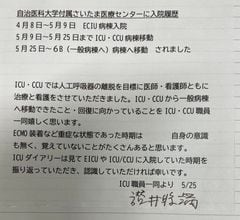 自治医科大学付属さいたま医療センターに入院履歴
4月8日～5月9日 ECIU病棟入院
5月9日～5月25日まで ICU・CCU病棟移動
5月25日～6B(一般病棟へ)病棟へ移動 されました
ICU・CCUでは人工呼吸器の離脱を目標に医師・看護師ともに
治療と看護をさせていただきました。ICU・CCUから一般病棟
へ移動できたこと・回復に向かっていることを ICU・CCU職員
一同嬉しく思います。
ECMO装着など重症な状態であった時期は 自身の意識
も無く、覚えていないことがたくさんあると思います。
ICUダイアリーは見てEICUやICU/CCUに入院していた時期を
振り返っていただき、認識していただければ幸いです。
ICU職員一同より 5/25